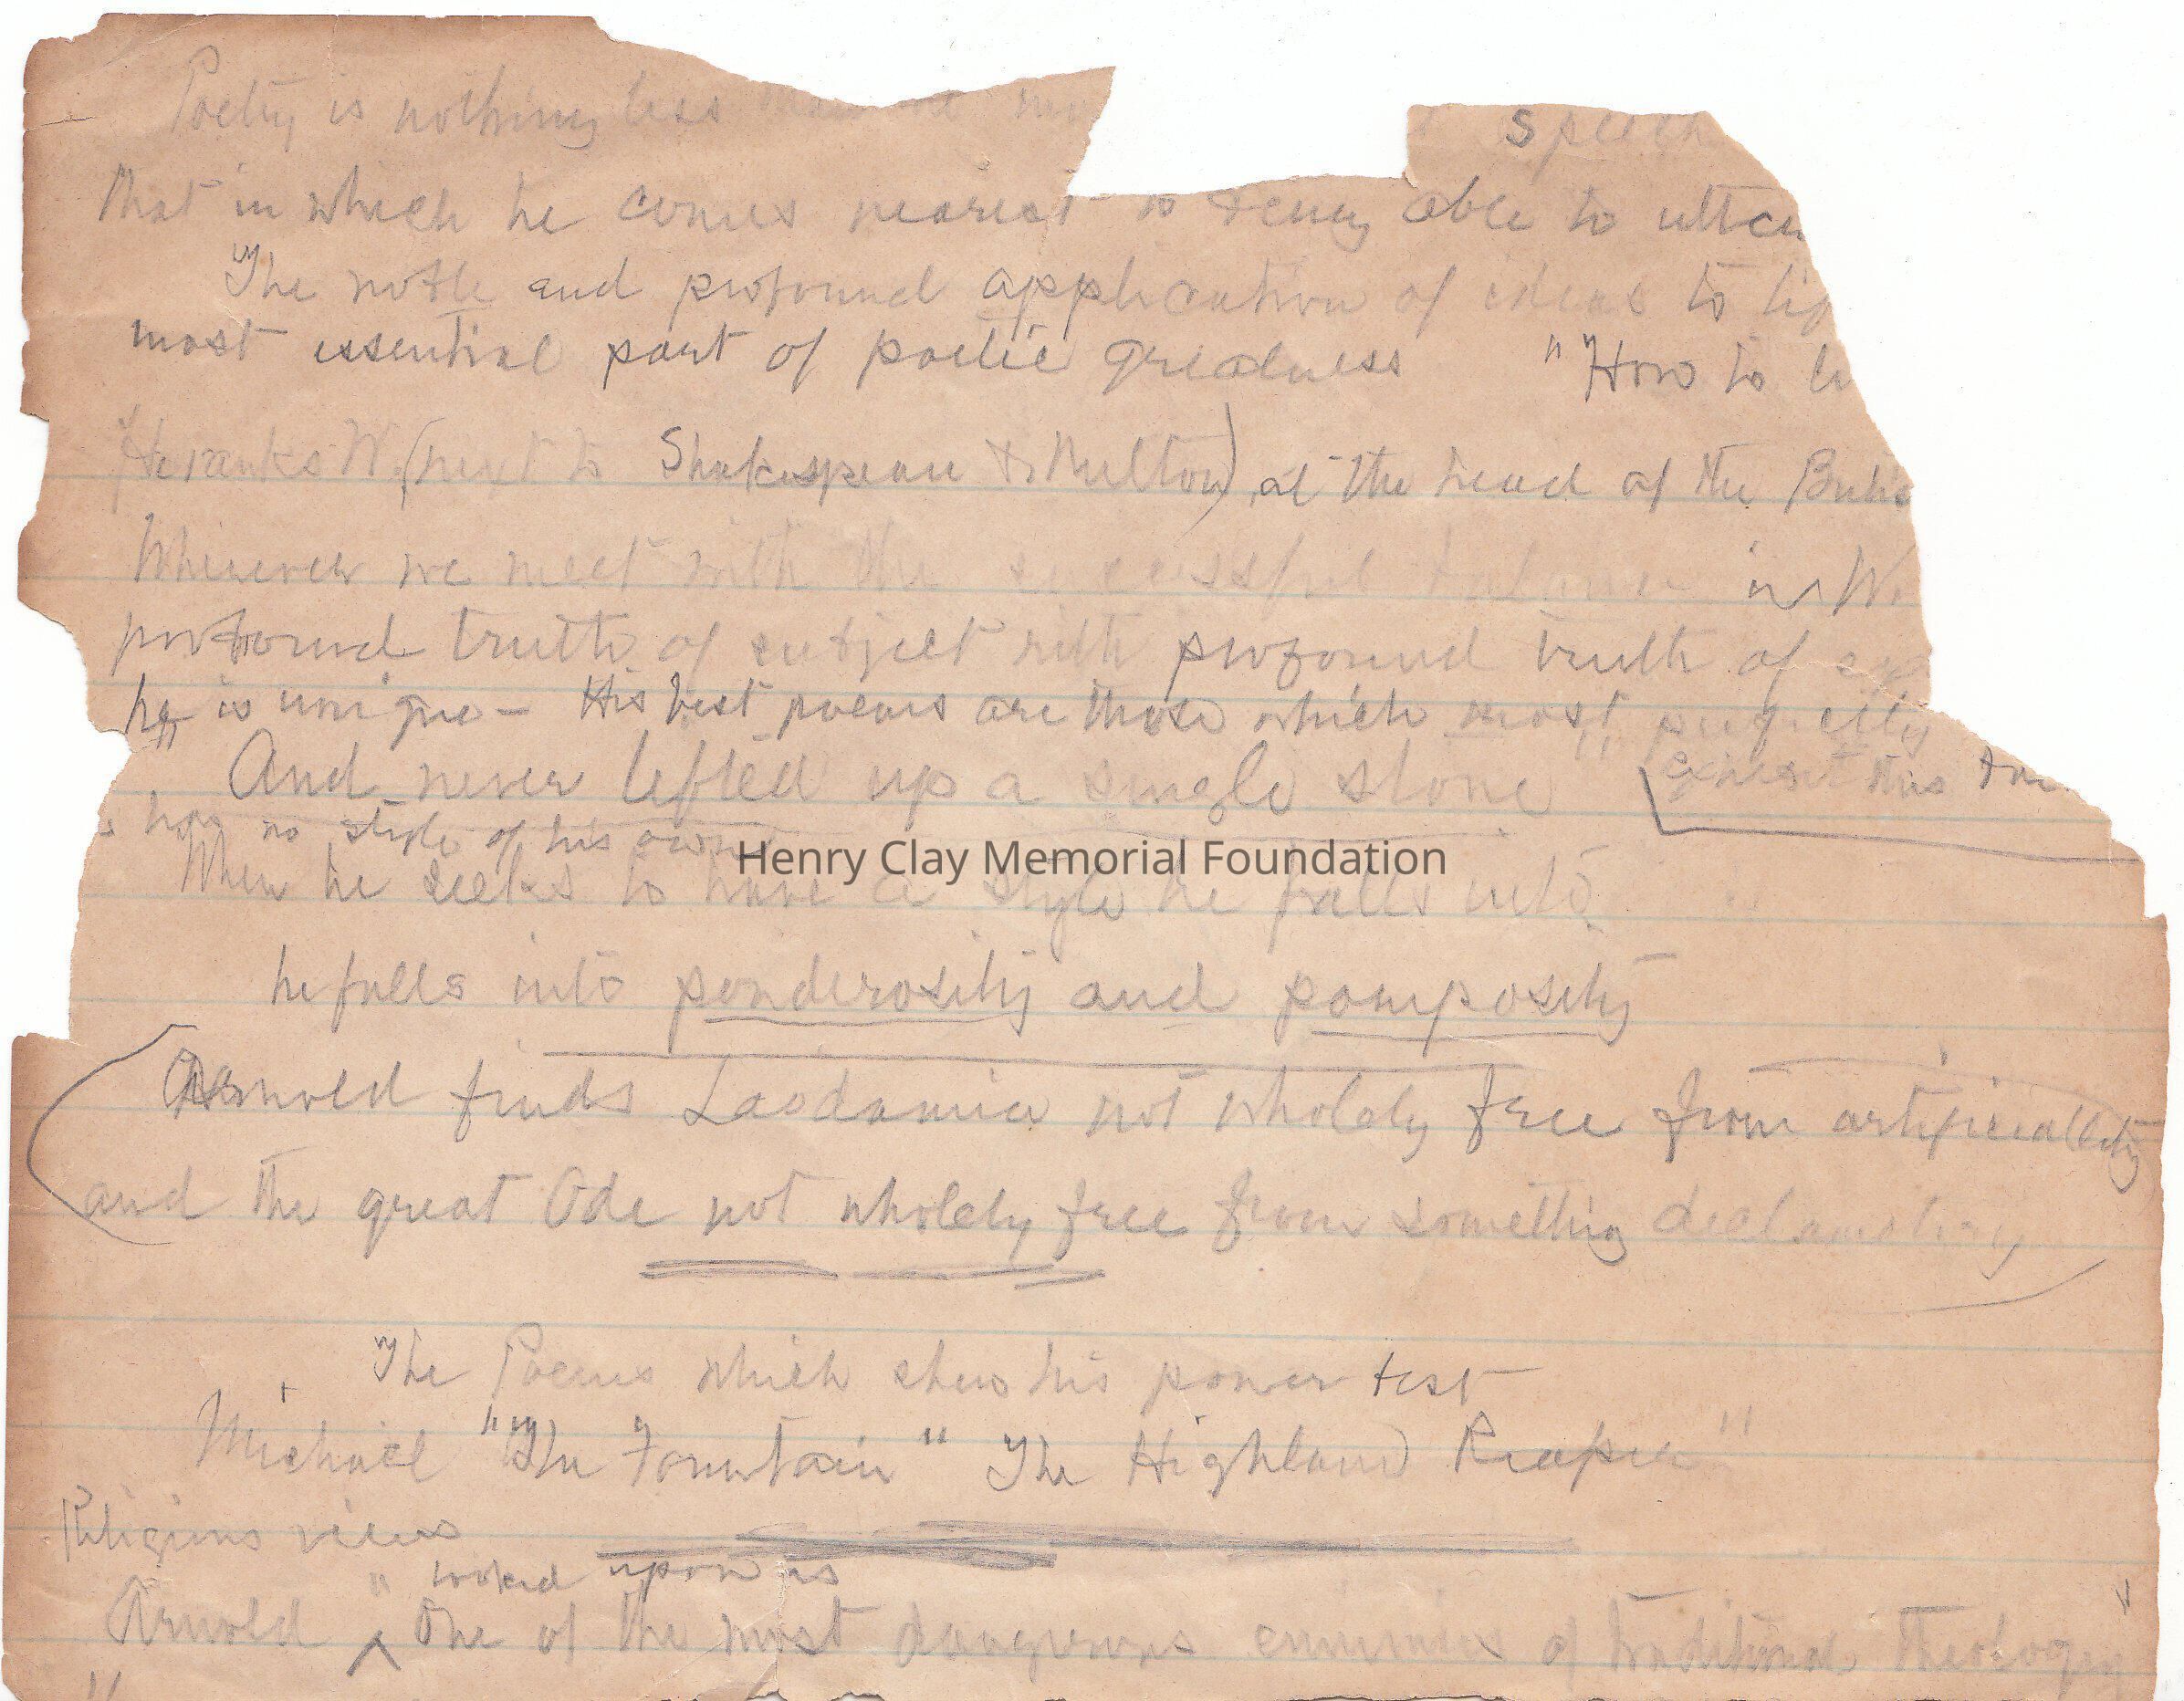 Poetry is nothing less speech
that in which he comes nearest to being able to utter
The noble and profound application of ideas to lif
most essential part of poetic greatness "How to li
He ranks W. (next to Shakespeare & Milton), at the head of the
Whenever we meet with the successful balance in W.
profound truth of subject with profound truth of ex
he is unique - His best poems are those which most perfectly
exhibit this
"And never lifted up a single stone"
has no style of his own
When he seeks to have a style he falls into
he falls into ponderosity and pomposity
Arnold finds Laodamia not wholely free from artificiallity
and the great Ode not wholely free from something declamatory
The Poems which show his power best
Michael "The Fountain" The Highland Reaper"
Religious views
" looked upon as
Arnold ^ One of the most dangerous enimies of traditional Theology
"
Henry Clay Memorial Foundation